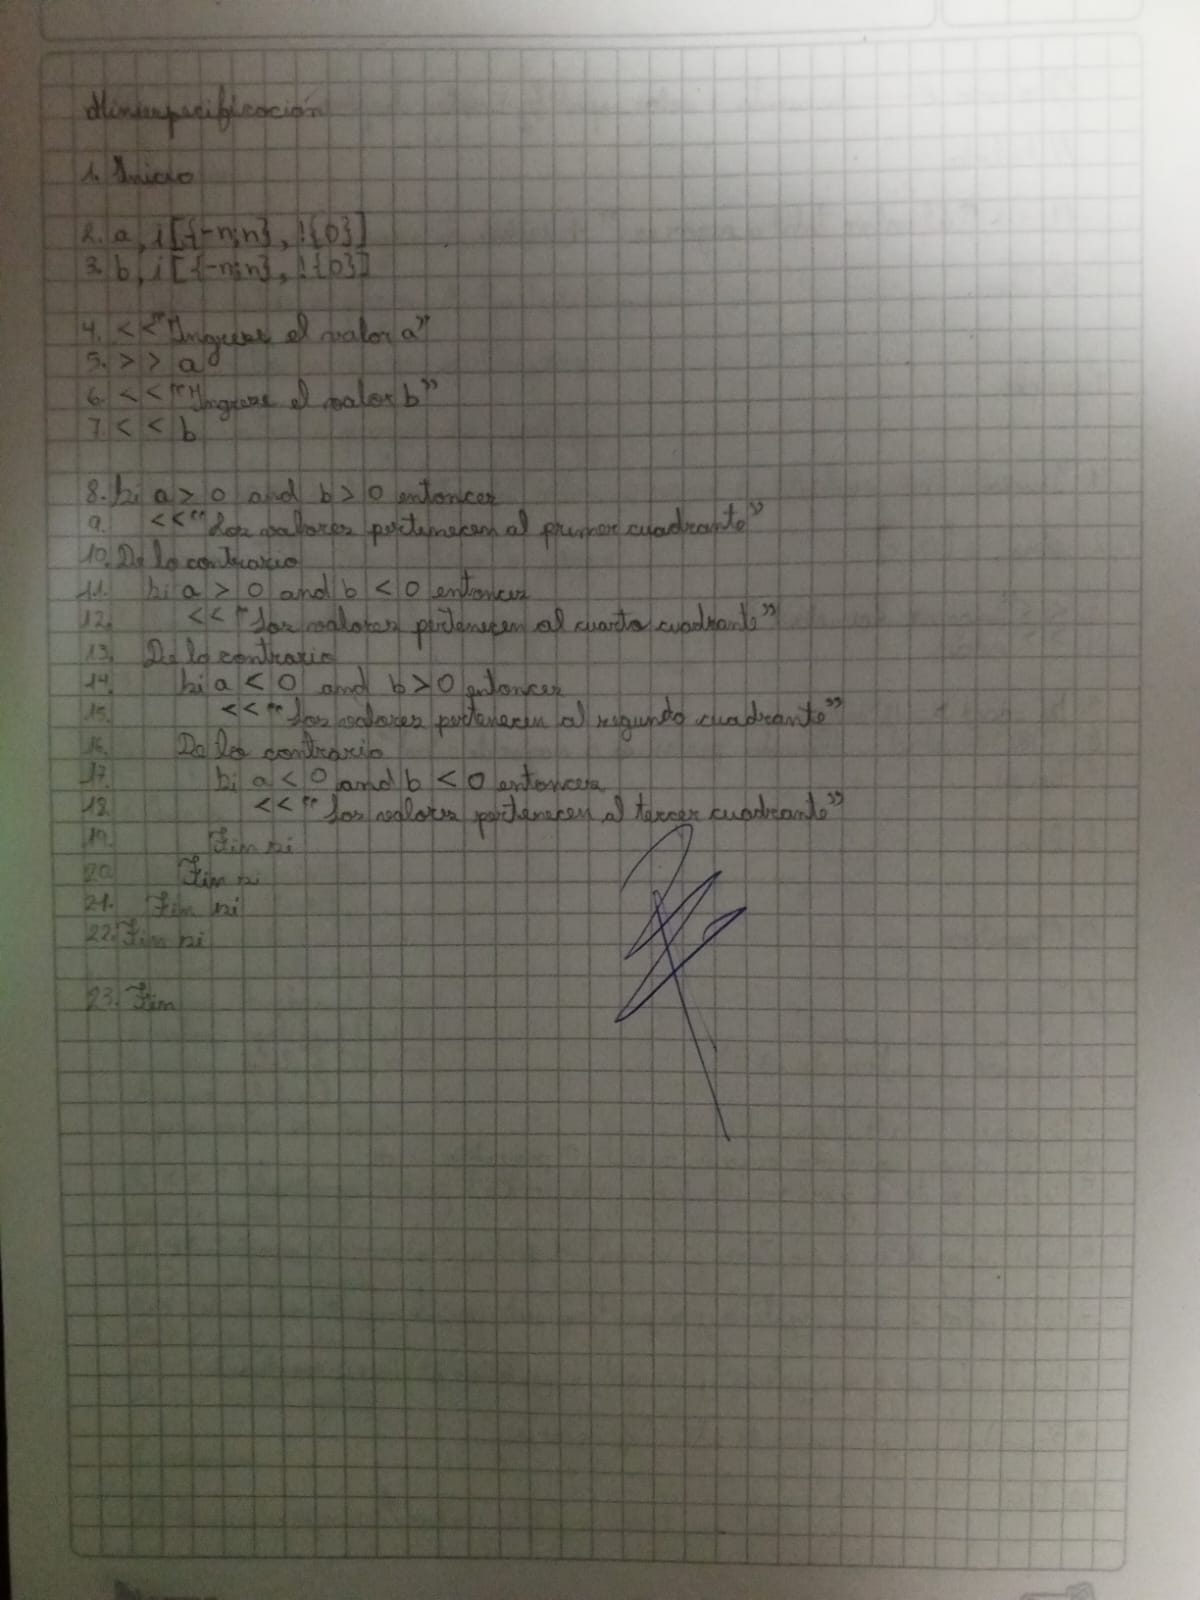 Miniespecificación
1. Inicio
2. a, i [{-n;n}, !{0}]
3. b, i [{-n;n}, !{0}]
4. << "Ingrese el valor a"
5. >> a
6. << "Ingrese el valor b"
7. << b
8. Si a > 0 and b > 0 entonces
9. << "Los valores pertenecen al primer cuadrante"
10. De lo contrario
11. Si a > 0 and b < 0 entonces
12. << "Los valores pertenecen al cuarto cuadrante"
13. De lo contrario
14. Si a < 0 and b > 0 entonces
15. << "Los valores pertenecen al segundo cuadrante"
16. De lo contrario
17. Si a < 0 and b < 0 entonces
18. << "Los valores pertenecen al tercer cuadrante"
19. Fin si
20. Fin si
21. Fin si
22. Fin si
23. Fin